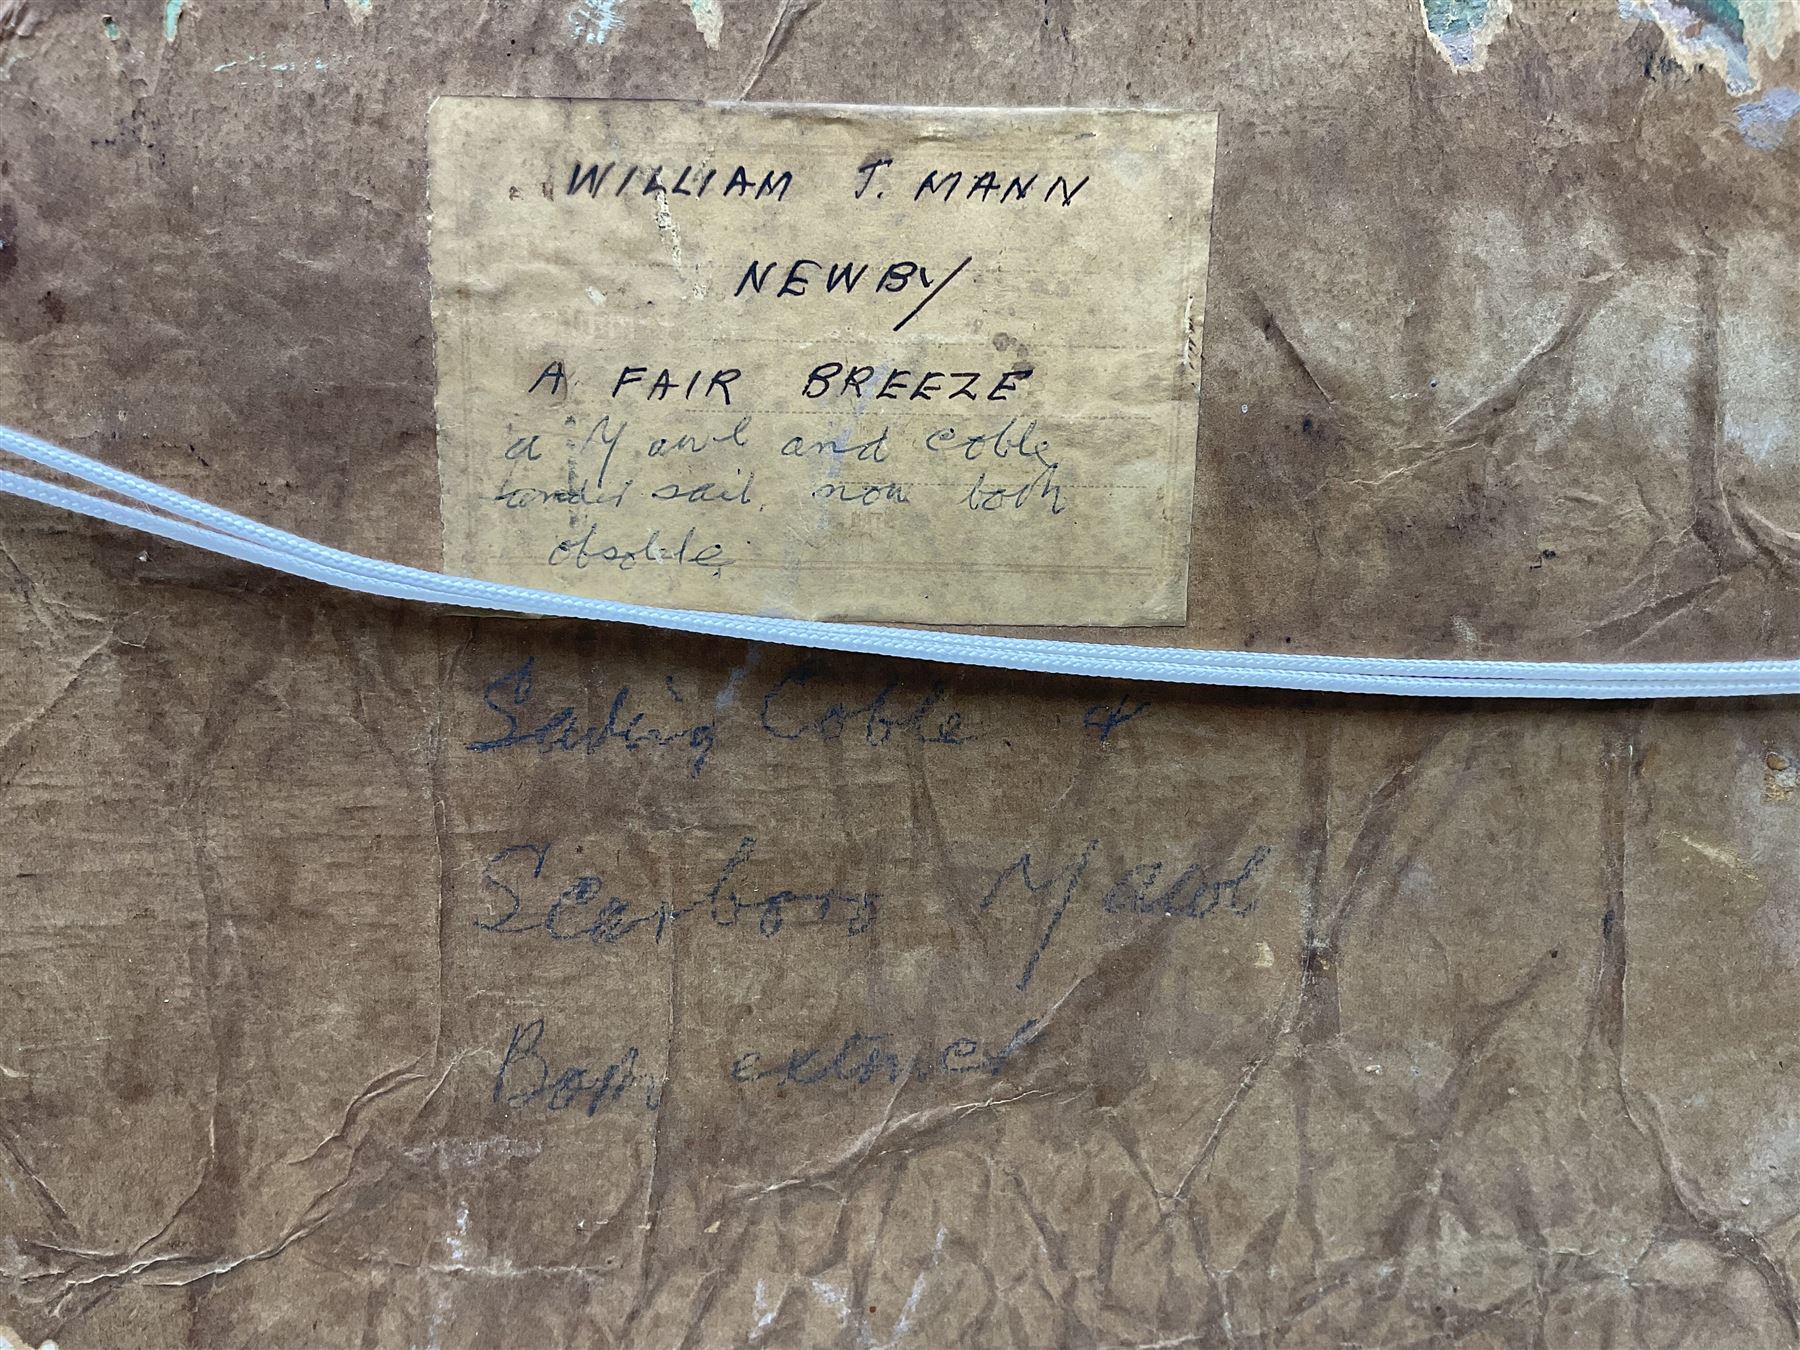 WILLIAM J. MANN
NEWBY
A FAIR BREEZE
a Yawl and Coble
under sail. now both
obsolete.
Sailing Coble &
Scarboro Yawl
Both extinct